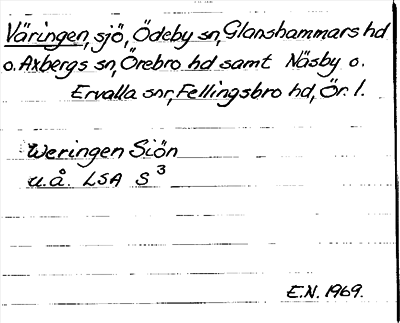 Väringen, sjö, Ödeby sn, Glanshammars hd
o. Axbergs sn, Örebro hd samt Näsby o.
Ervalla snr, Fellingsbro hd, Ör. l.
Weringen Siön
u.å. LSA S 3
E.N. 1969.